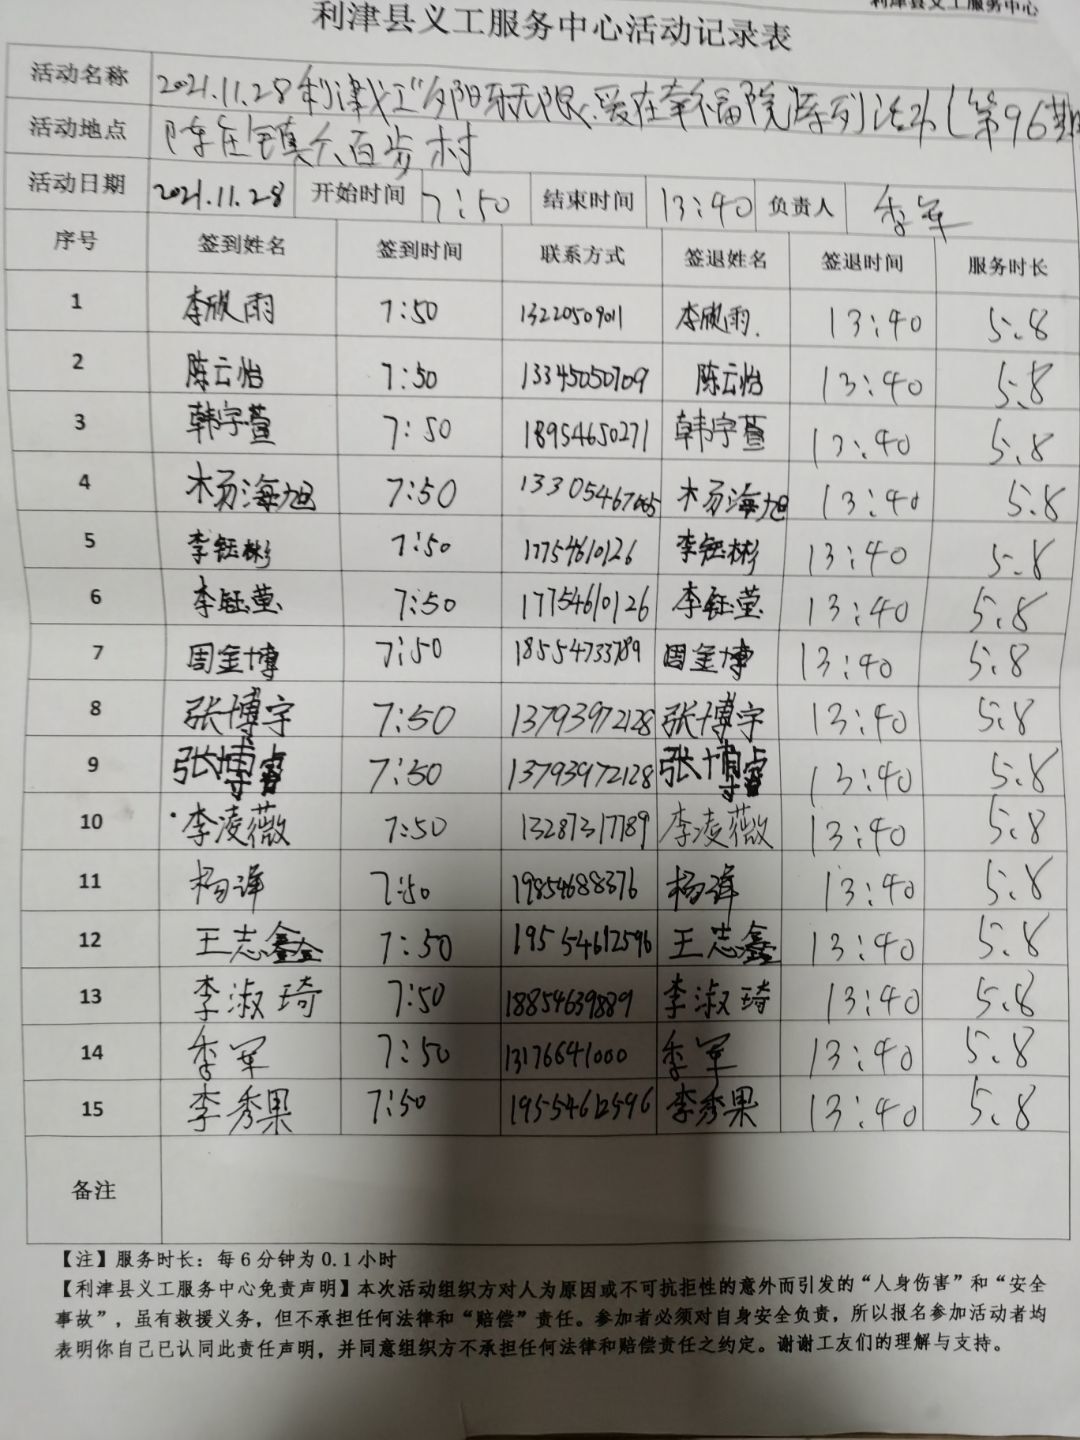 利津县义工服务中心
利津县义工服务中心活动记录表
活动名称 2021.11.28利津义工"夕阳乐无限、爱在幸福院"系列活动(第96期
活动地点 陈庄镇六百步村
活动日期 2021.11.28 开始时间 7:50 结束时间 13:40 负责人 李军
序号 签到姓名 签到时间 联系方式 签退姓名 签退时间 服务时长
1 李欣雨 7:50 13220509011 李欣雨. 13:40 5.8
2 陈云怡 7:50 13345050709 陈云怡 13:40 5.8
3 韩宇萱 7:50 18954650271 韩宇萱 13:40 5.8
4 杨海旭 7:50 杨海旭 13:40 5.8
5 李钰彬 7:50 17754610126 李钰彬 13:40 5.8
6 李钰莹 7:50 17754610126 李钰莹 13:40 5.8
7 周金博 7:50 18554733789 周金博 13:40 5.8
8 张博宇 7:50 13793972128 张博宇 13:40 5.8
9 张博睿 7:50 13793972128 张博睿 13:40 5.8
10 李凌薇 7:50 13287317789 李凌薇 13:40 5.8
11 杨译 7:50 19854688376 杨译 13:40 5.8
12 王志鑫 7:50 19554612596 王志鑫 13:40 5.8
13 李淑琦 7:50 18854639889 李淑琦 13:40 5.8
14 李军 7:50 13176641000 李军 13:40 5.8
15 李秀果 7:50 19554612596 李秀果 13:40 5.8
备注
【注】服务时长：每6分钟为0.1小时
【利津县义工服务中心免责声明】本次活动组织方对人为原因或不可抗拒性的意外而引发的“人身伤害”和“安全
事故”，虽有救援义务，但不承担任何法律和“赔偿”责任。参加者必须对自身安全负责，所以报名参加活动者均
表明你自己已认同此责任声明，并同意组织方不承担任何法律和赔偿责任之约定。谢谢工友们的理解与支持。